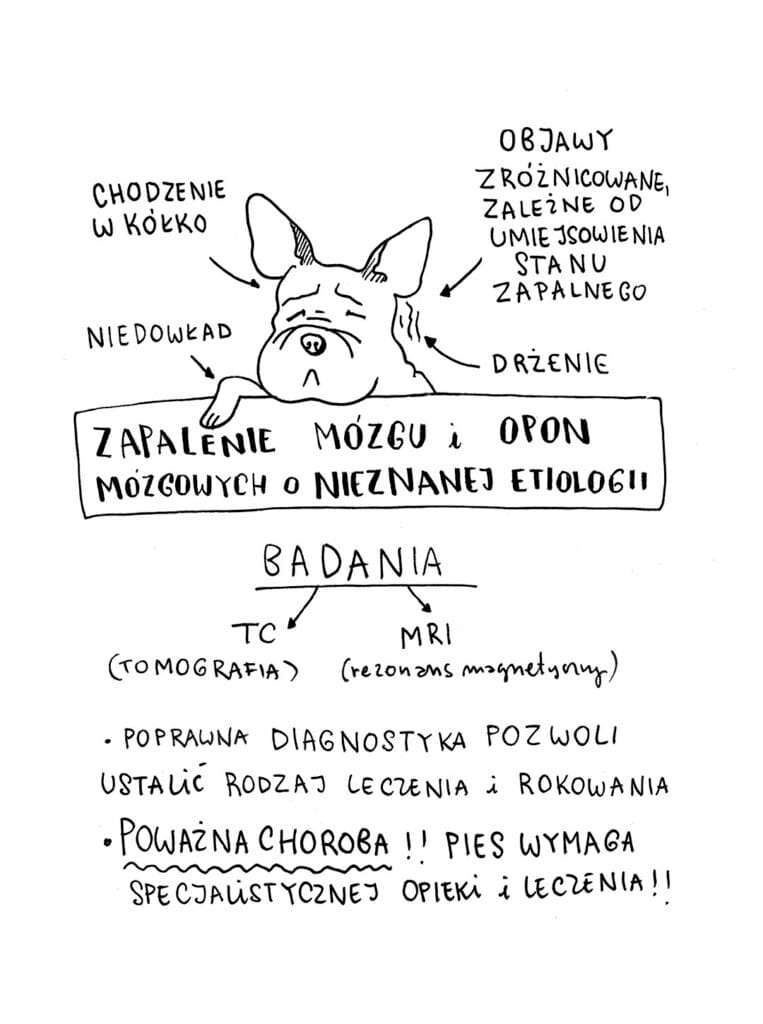 CHODZENIE
W KÓŁKO
OBJAWY
ZRÓŻNICOWANE,
ZALEŻNE OD
UMIEJSOWIENIA
STANU
ZAPALNEGO
NIEDOWŁAD
DRŻENIE
ZAPALENIE MÓZGU i OPON
MÓZGOWYCH O NIEZNANEJ ETIOLOGII
BADANIA
TC
(TOMOGRAFIA)
MRI
(rezonans magnetyczny)
• POPRAWNA DIAGNOSTYKA POZWOLI
USTALIĆ RODZAJ LECZENIA i ROKOWANIA
• POWAŻNA CHOROBA !! PIES WYMAGA
SPECJALISTYCZNEJ OPIEKI i LECZENIA!!